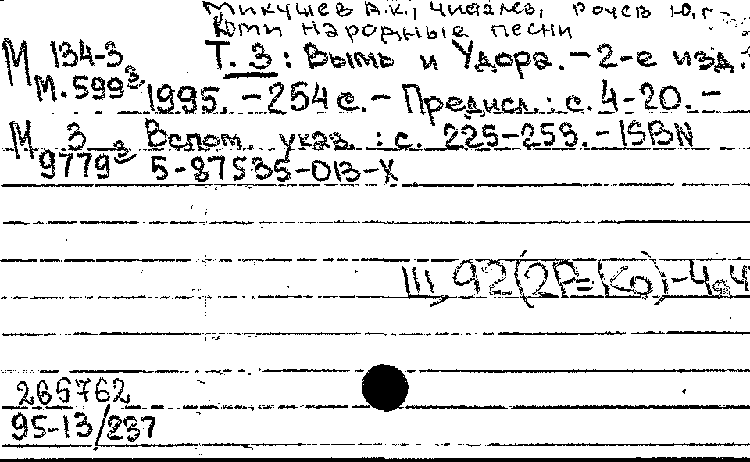 Микушев А.К., Чисталев, Рочев Ю.Г.
Коми народные песни
М 134-3 Т. 3 : Вымь и Удора. - 2-е изд.
М. 599з 1995. - 254 с. - Предисл.: с. 4-20. -
М 3 Вспом. указ. : с. 225-253. - ISBN
9779з 5-87535-013-X
III, 92(2Р=Ко)-4.4
265762
95-13/237